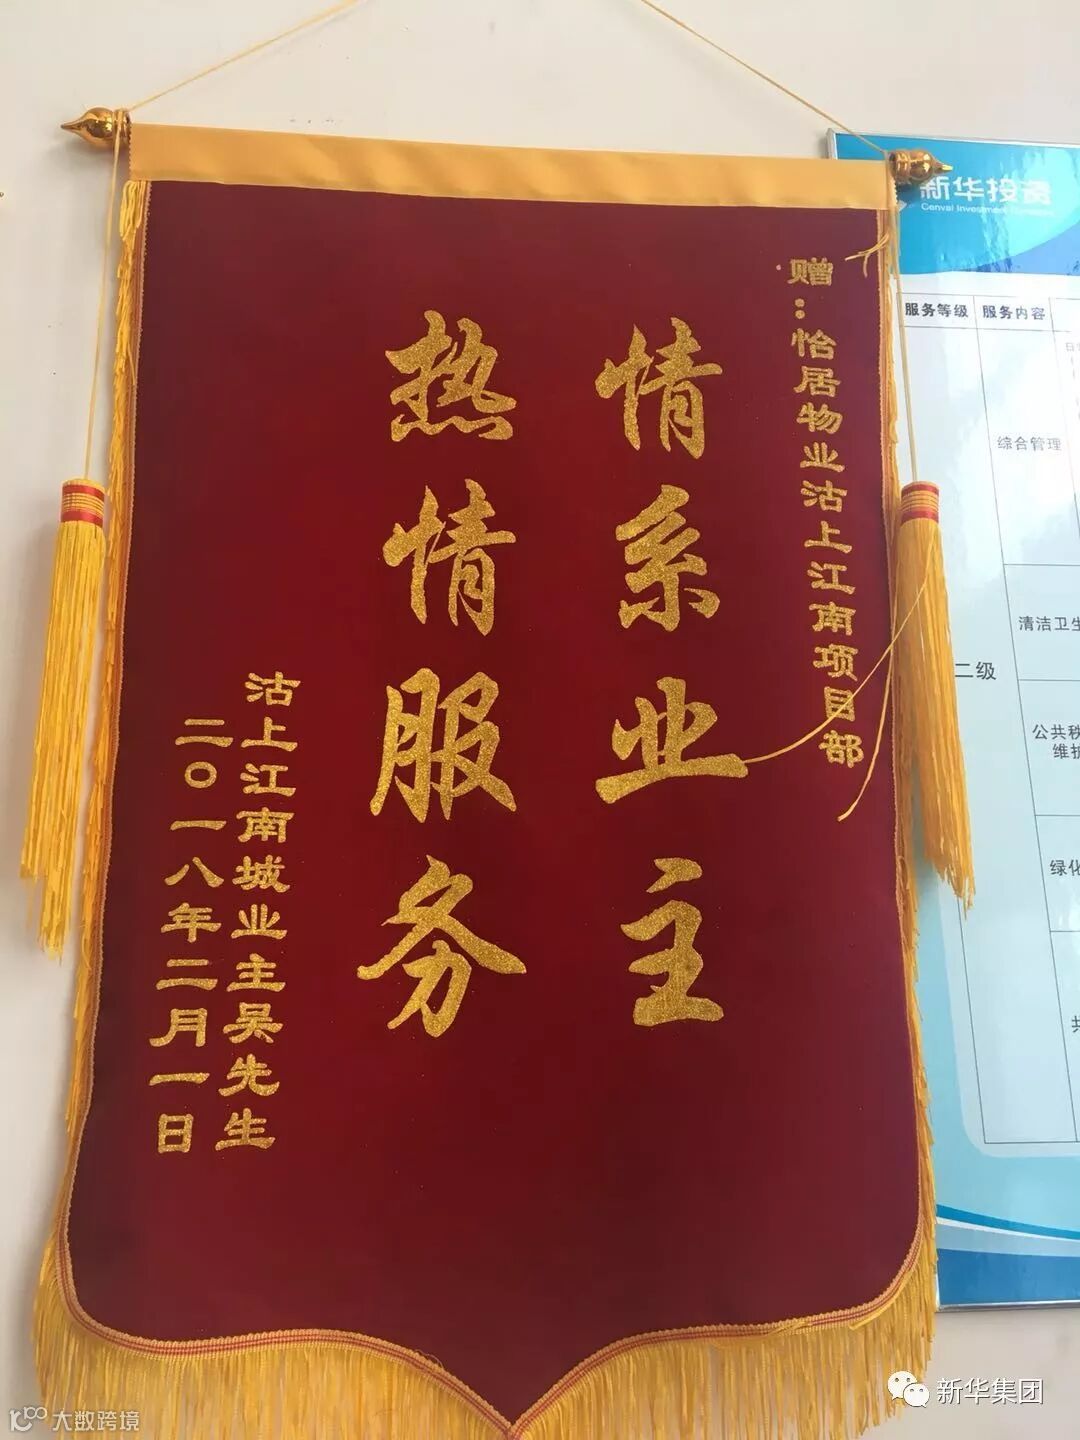 赠：恰居物业沽上江南项目部
情系业主
热情服务
沽上江南城业主吴先生
二〇一八年二月一日
新华投资
服务等级
服务内容
综合管理
清洁卫生
二级
公共秩
维护
绿化
新华集团
大数跨境